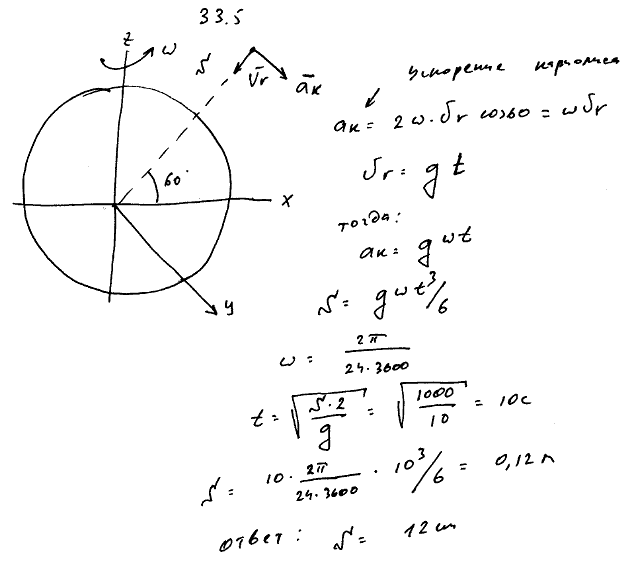 33.5
z ω
S v̄r āк
60°
x
y
ускорение кориолиса
aк = 2ω · vr cos60 = ωvr
vr = gt
тогда:
aк = gωt
S = gωt³/6
ω = 2π/24·3600
t = √(S·2/g) = √(1000/10) = 10с
S = 10 · 2π/24·3600 · 10³/6 = 0,12м
ответ: S = 12см